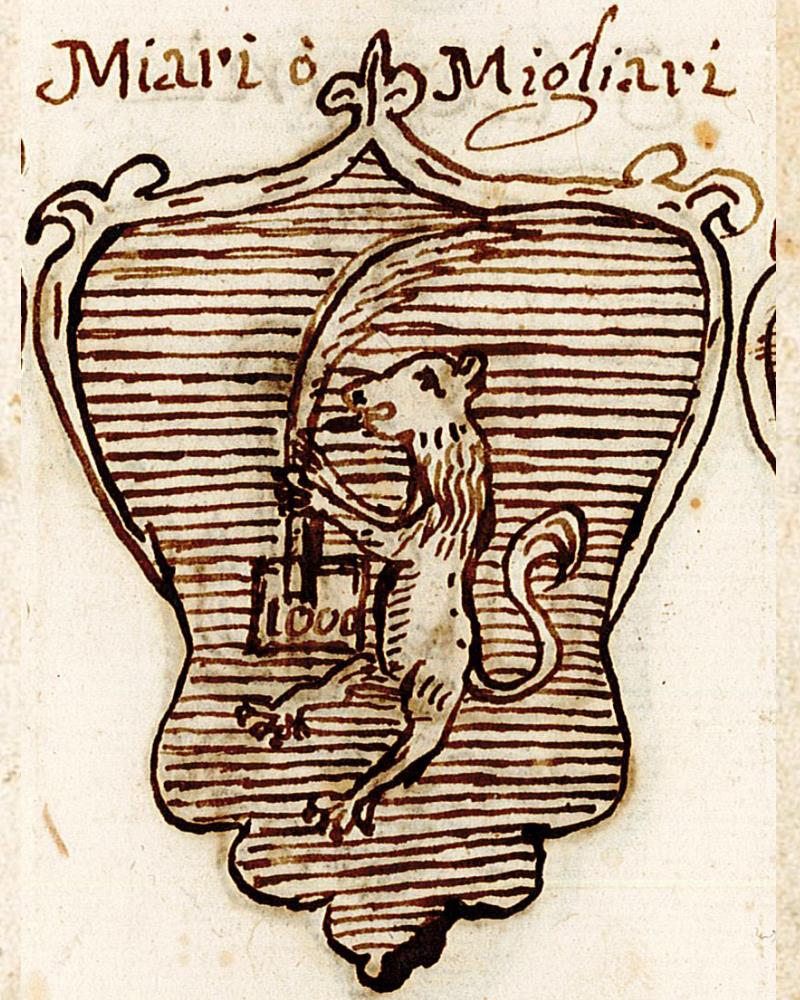 Miari ò Migliari
1000